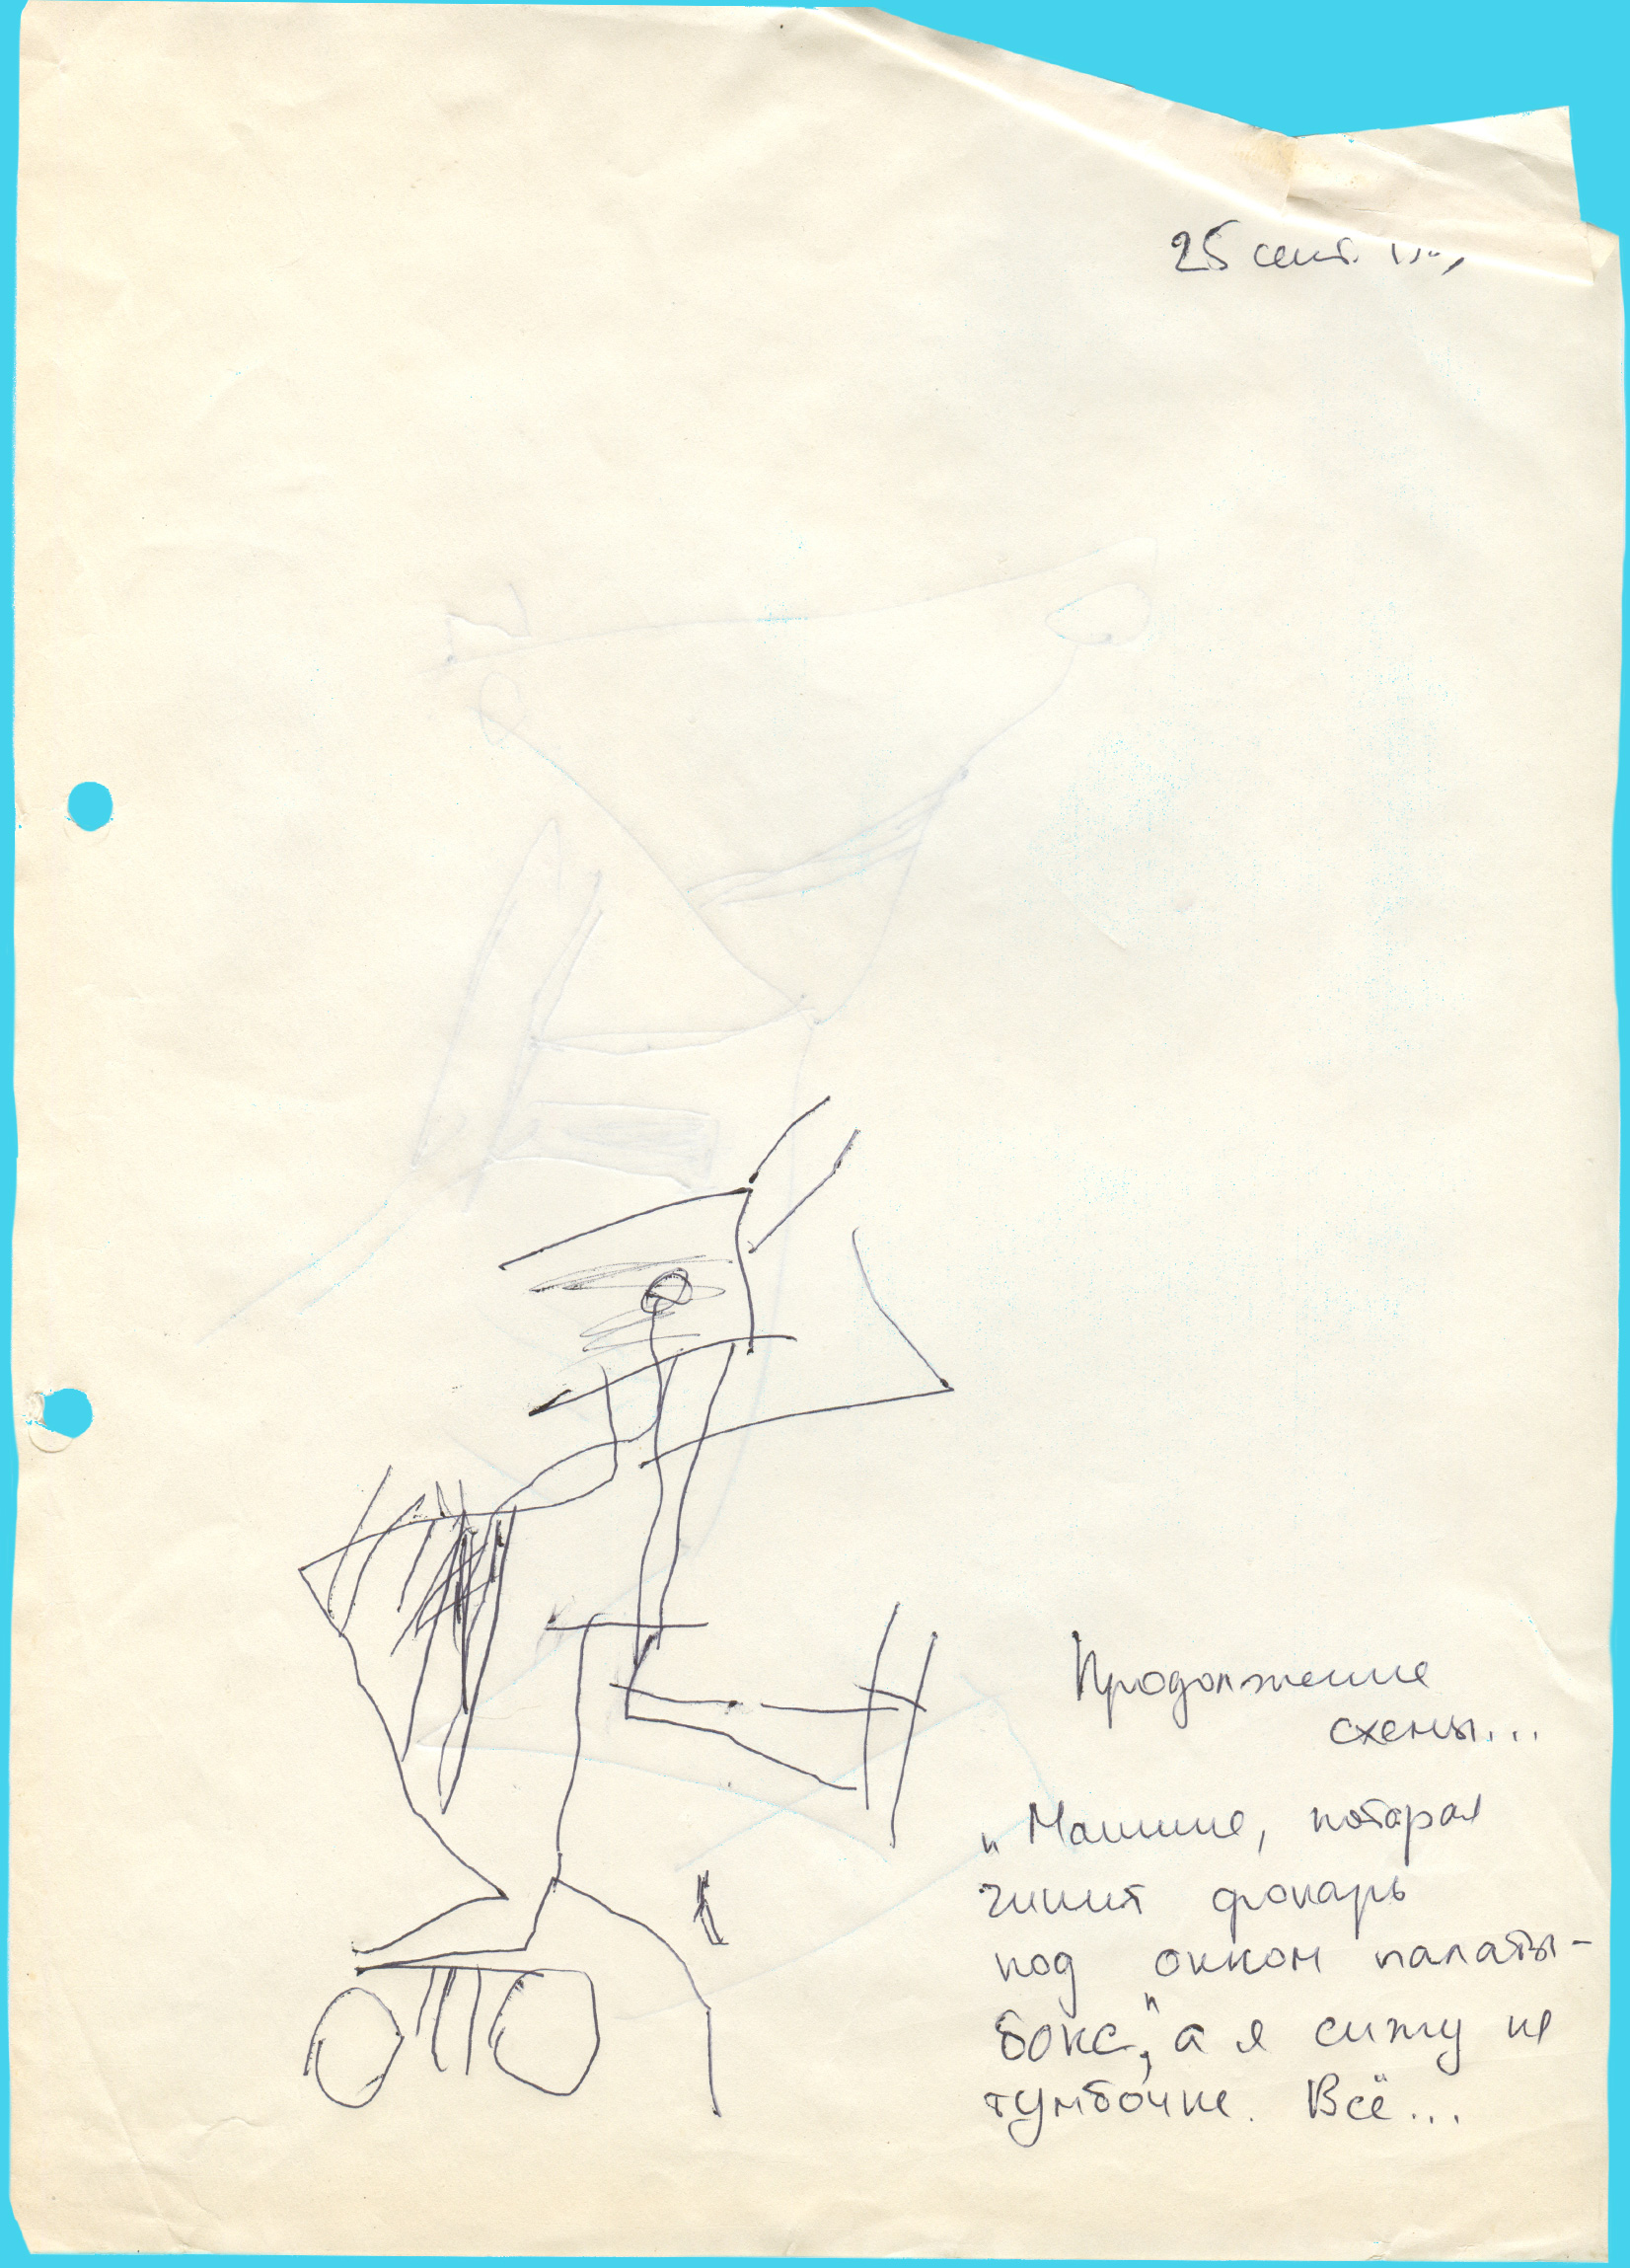 25 сент.
Продолжение
схемы...
„Машина, которая
чинит фонарь
под окном палаты-
бокс", а я сижу на
тумбочке. Всё...